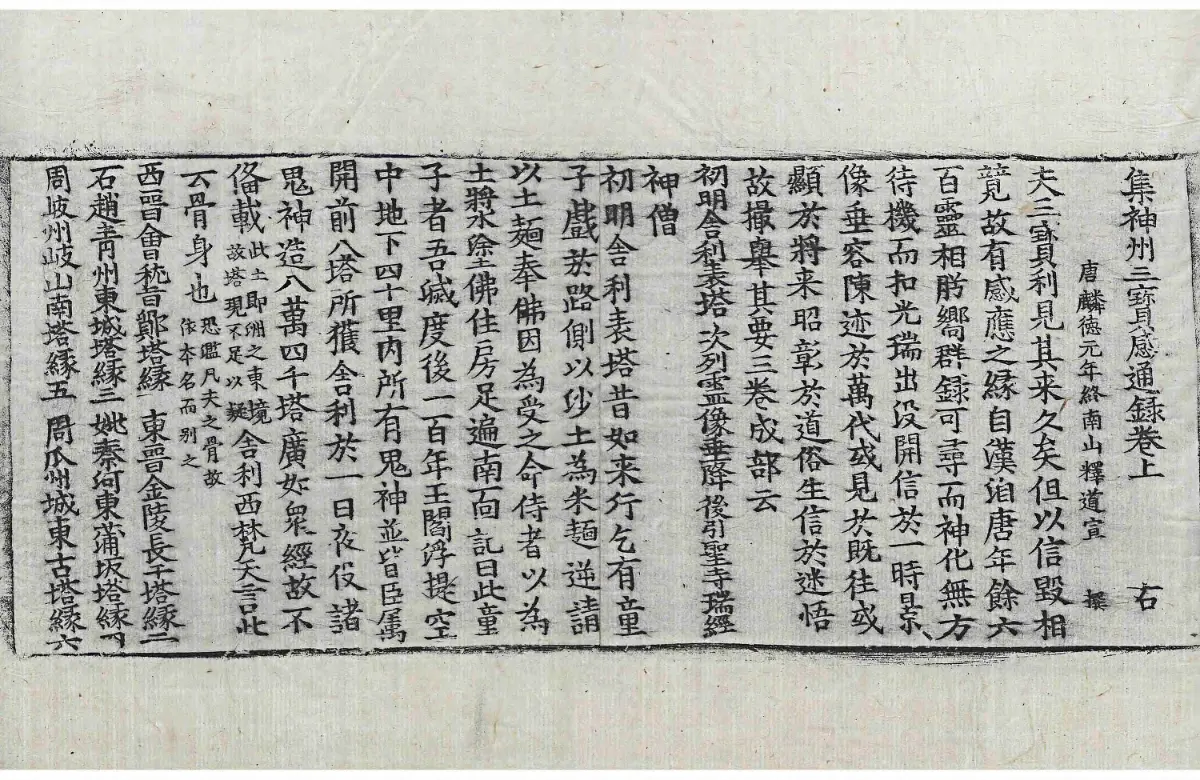 集神州三寶感通錄卷上 右
唐麟德元年終南山釋道宣 撰
夫三寶利見其来久矣但以信毀相
競故有感應之緣自漢洎唐年餘六
百靈相肹嚮群錄可尋而神化無方
待機而扣光瑞出没開信於一時景
像垂容陳迹於萬代或見於既往或
顯於將来昭彰於道俗生信於迷悟
故撮舉其要三卷成部云
初明舍利表塔 次列靈像垂降 後引聖寺瑞經
神僧
初明舍利表塔昔如来行乞有童
子戲於路側以沙土為米麵逆請
以土麵奉佛因為受之命侍者以為
土漿水塗佛住房足遍南面記曰此童
子者吾滅度後一百年王閻浮提空
中地下四十里內所有鬼神並皆臣屬
開前八塔所獲舍利於一日夜役諸
鬼神造八萬四千塔廣如衆經故不
俻載此土即洲之東境故塔現不足以疑舍利西梵天言此
云骨身也恐濫凡夫之骨故依本名而别之
西晉會稽鄮塔緣一 東晉金陵長干塔緣二
石趙青州東城塔緣三 姚秦河東蒲坂塔緣四
周岐州岐山南塔緣五 周瓜州城東古塔緣六